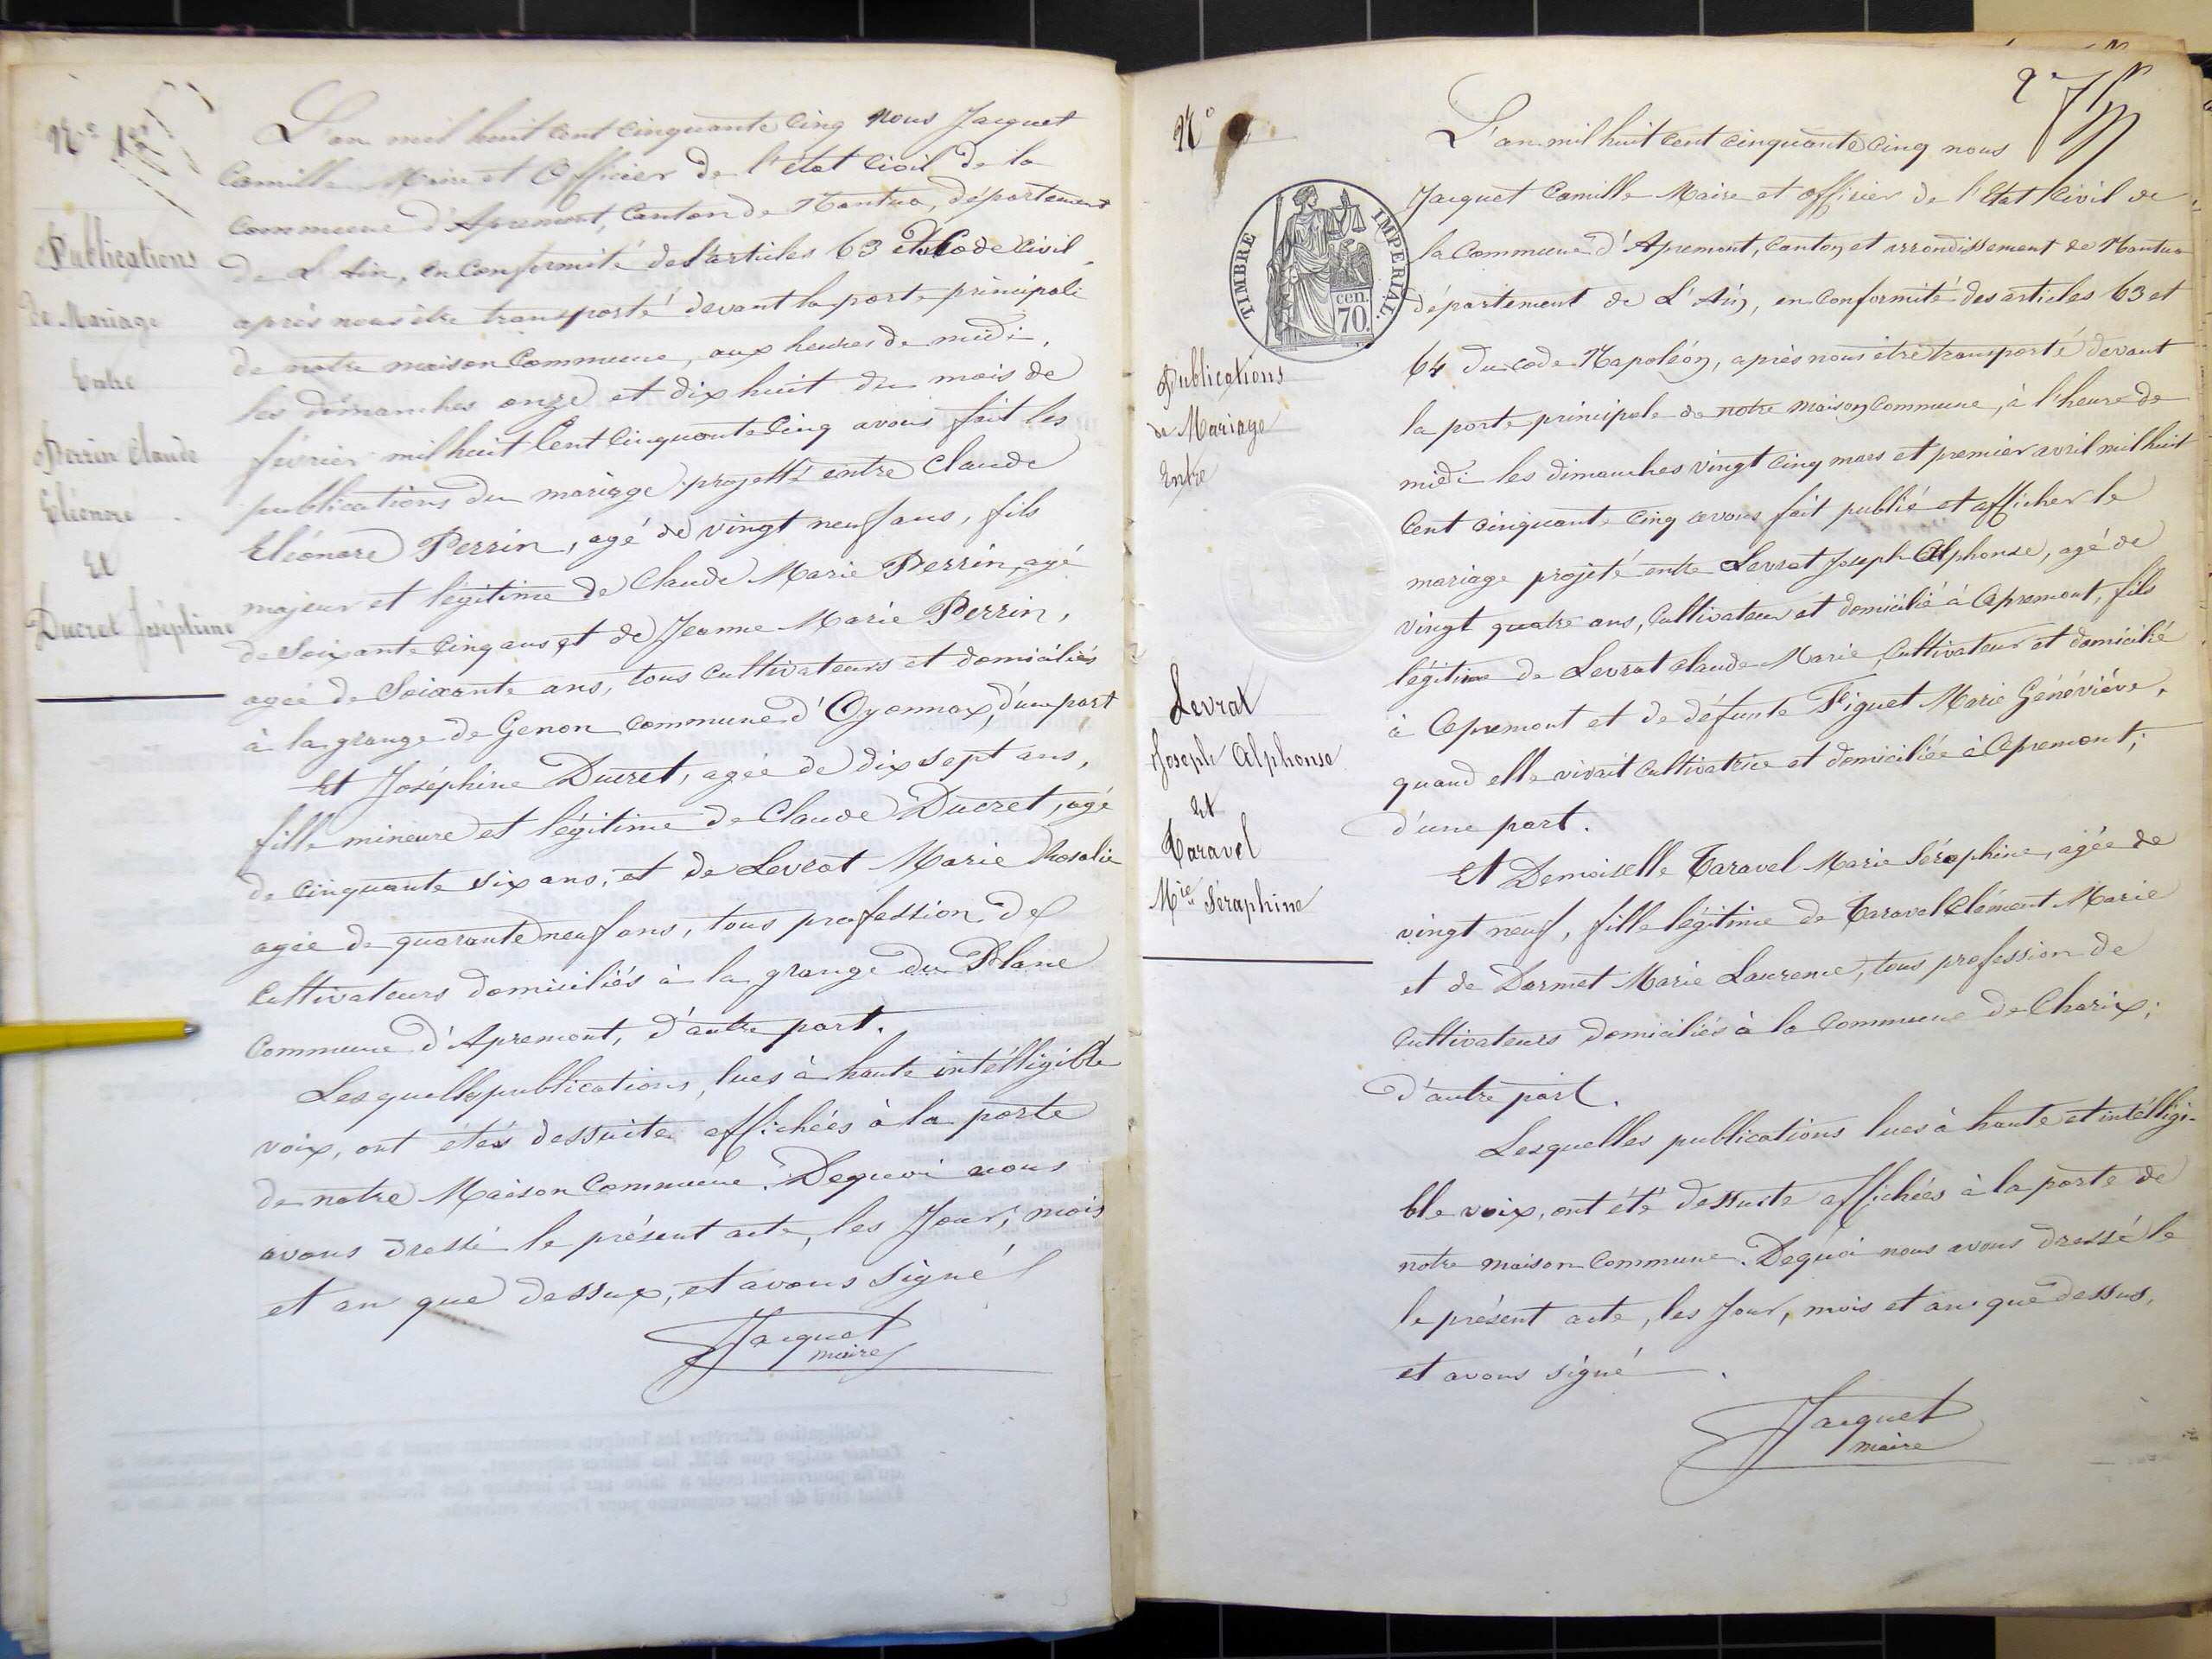 N°
Publications
de Mariage
Entre
Perrin Claude
Eléonore
Et
Ducret Joséphine
L'an mil huit cent cinquante cinq nous Jacquet
Camille Maire et Officier de l'état Civil de la
commune d'Apremont, Canton de Nantua, département
de L'Ain, en conformité des articles 63 et du Code Civil,
après nous être transporté devant la porte principale
de notre maison Commune, aux heures de midi,
les dimanches onze et dix huit du mois de
février mil huit Cent Cinquante Cinq avons fait les
publications du mariage projetté entre Claude
Eléonore Perrin, agé de vingt neuf ans, fils
majeur et légitime de Claude Marie Perrin, agé
de Soixante Cinq ans et de Jeanne Marie Perrin,
agée de Soixante ans, tous cultivateurs et domiciliés
à la grange de Genon commune d'Oyonnax, d'une part
Et Joséphine Ducret, agée de dix sept ans,
fille mineure et légitime de Claude Ducret, agé
de Cinquante six ans, et de Levrat Marie Rosalie
agée de quarante neuf ans, tous profession de
Cultivateurs domiciliés à la grange du Blanc
Commune d'Apremont, d'autre part.
Lesquelles publications, lues à haute intélligible
voix, ont étés dessuite affichées à la porte
de notre Maison Commune. Dequoi nous
avons dressé le présent acte, les Jour, mois
et an que dessus, et avons Signé
Jacquet
maire
N°
TIMBRE IMPERIAL.
cen.
70.
Publications
de Mariage
Entre
Levrat
Joseph Alphonse
Et
Taravel
Mie Séraphine
2
L'an mil huit Cent cinquante Cinq nous
Jacquet Camille Maire et officier de l'Etat Civil de
la Commune d'Apremont, Canton et arrondissement de Nantua
département de L'Ain, en Conformité des articles 63 et
64 du code Napoléon, après nous être transporté devant
la porte principale de notre maison Commune, à l'heure de
midi les dimanches vingt Cinq mars et premier avril mil huit
Cent Cinquante Cinq avons fait publié et afficher le
mariage projeté entre Levrat Joseph Alphonse, agé de
vingt quatre ans, Cultivateur et domicilié à Apremont, fils
légitime de Levrat Claude Marie, Cultivateur et domicilié
à Apremont et de défunte Figuet Marie Généviéve,
quand elle vivait Cultivatrice et domiciliée à Apremont;
d'une part.
Et Demoiselle Taravel Marie Séraphine, agée de
vingt neuf, fille légitime de Taravel Clément Marie
et de Darmet Marie Laurence, tous profession de
Cultivateurs domiciliés à la Commune de Charix;
d'autre part.
Lesquelles publications lues à haute et intélligi-
ble voix, ont été dessuite affichées à la porte de
notre maison Commune. Dequoi nous avons dressé le
le présent acte, les Jour, mois et an que dessus,
et avons signé.
Jacquet
maire